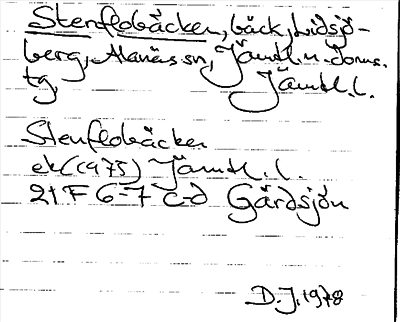 Stenflobäcken, bäck, Lidsjö-
berg, Alanäs sn, Jämtl. n. doms.
tg, Jämtl. l.
Stenflobäcken
ek (1975) Jämtl. l.
21 F 6-7 c-d Gårdsjön
D. J. 1978